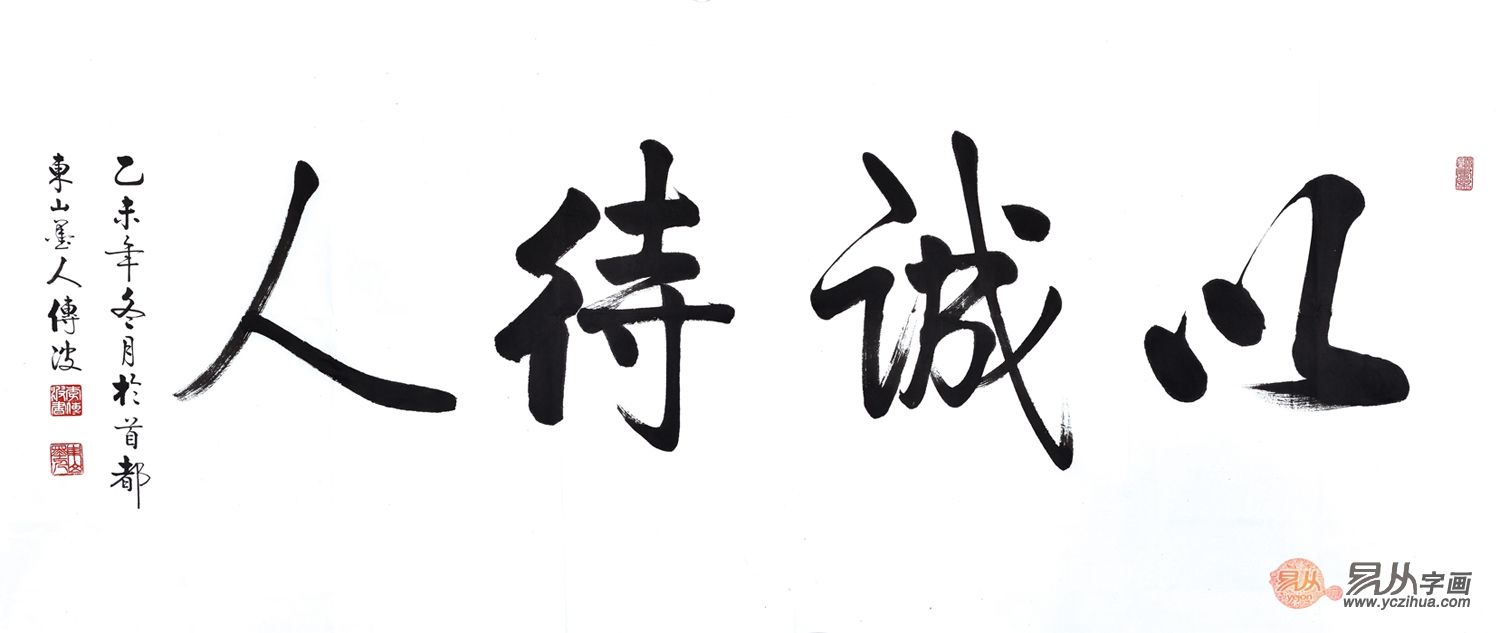 以诚待人
乙未年冬月於首都
東山墨人傳波
易从
yejon
易从字画
www.yczihua.com